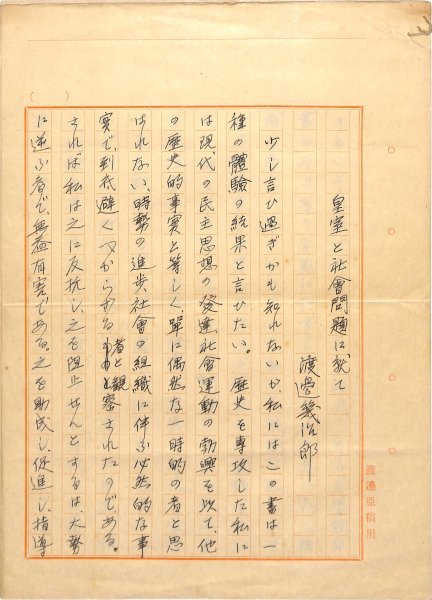 皇室と社會問題に就て
渡邊幾治郎
少し言ひ過ぎかも知れないが私にはこの書は一
種の體驗の結果と言ひたい。歴史を專攻した私に
は現代の民主思想の發達、社會運動の勃興を以て、他
の歴史的事実と等しく、單に偶然な一時的の者と思
はれない、時勢の進歩、社會の組織に伴ふ必然的な事
実で、到底避くべからざる者と観察されたのである。
されば私は之に反抗し、之を阻止せんとするは、大勢
に逆ふ者で、無益有害である。之を助成し、促進し、指導
渡邊原稿用